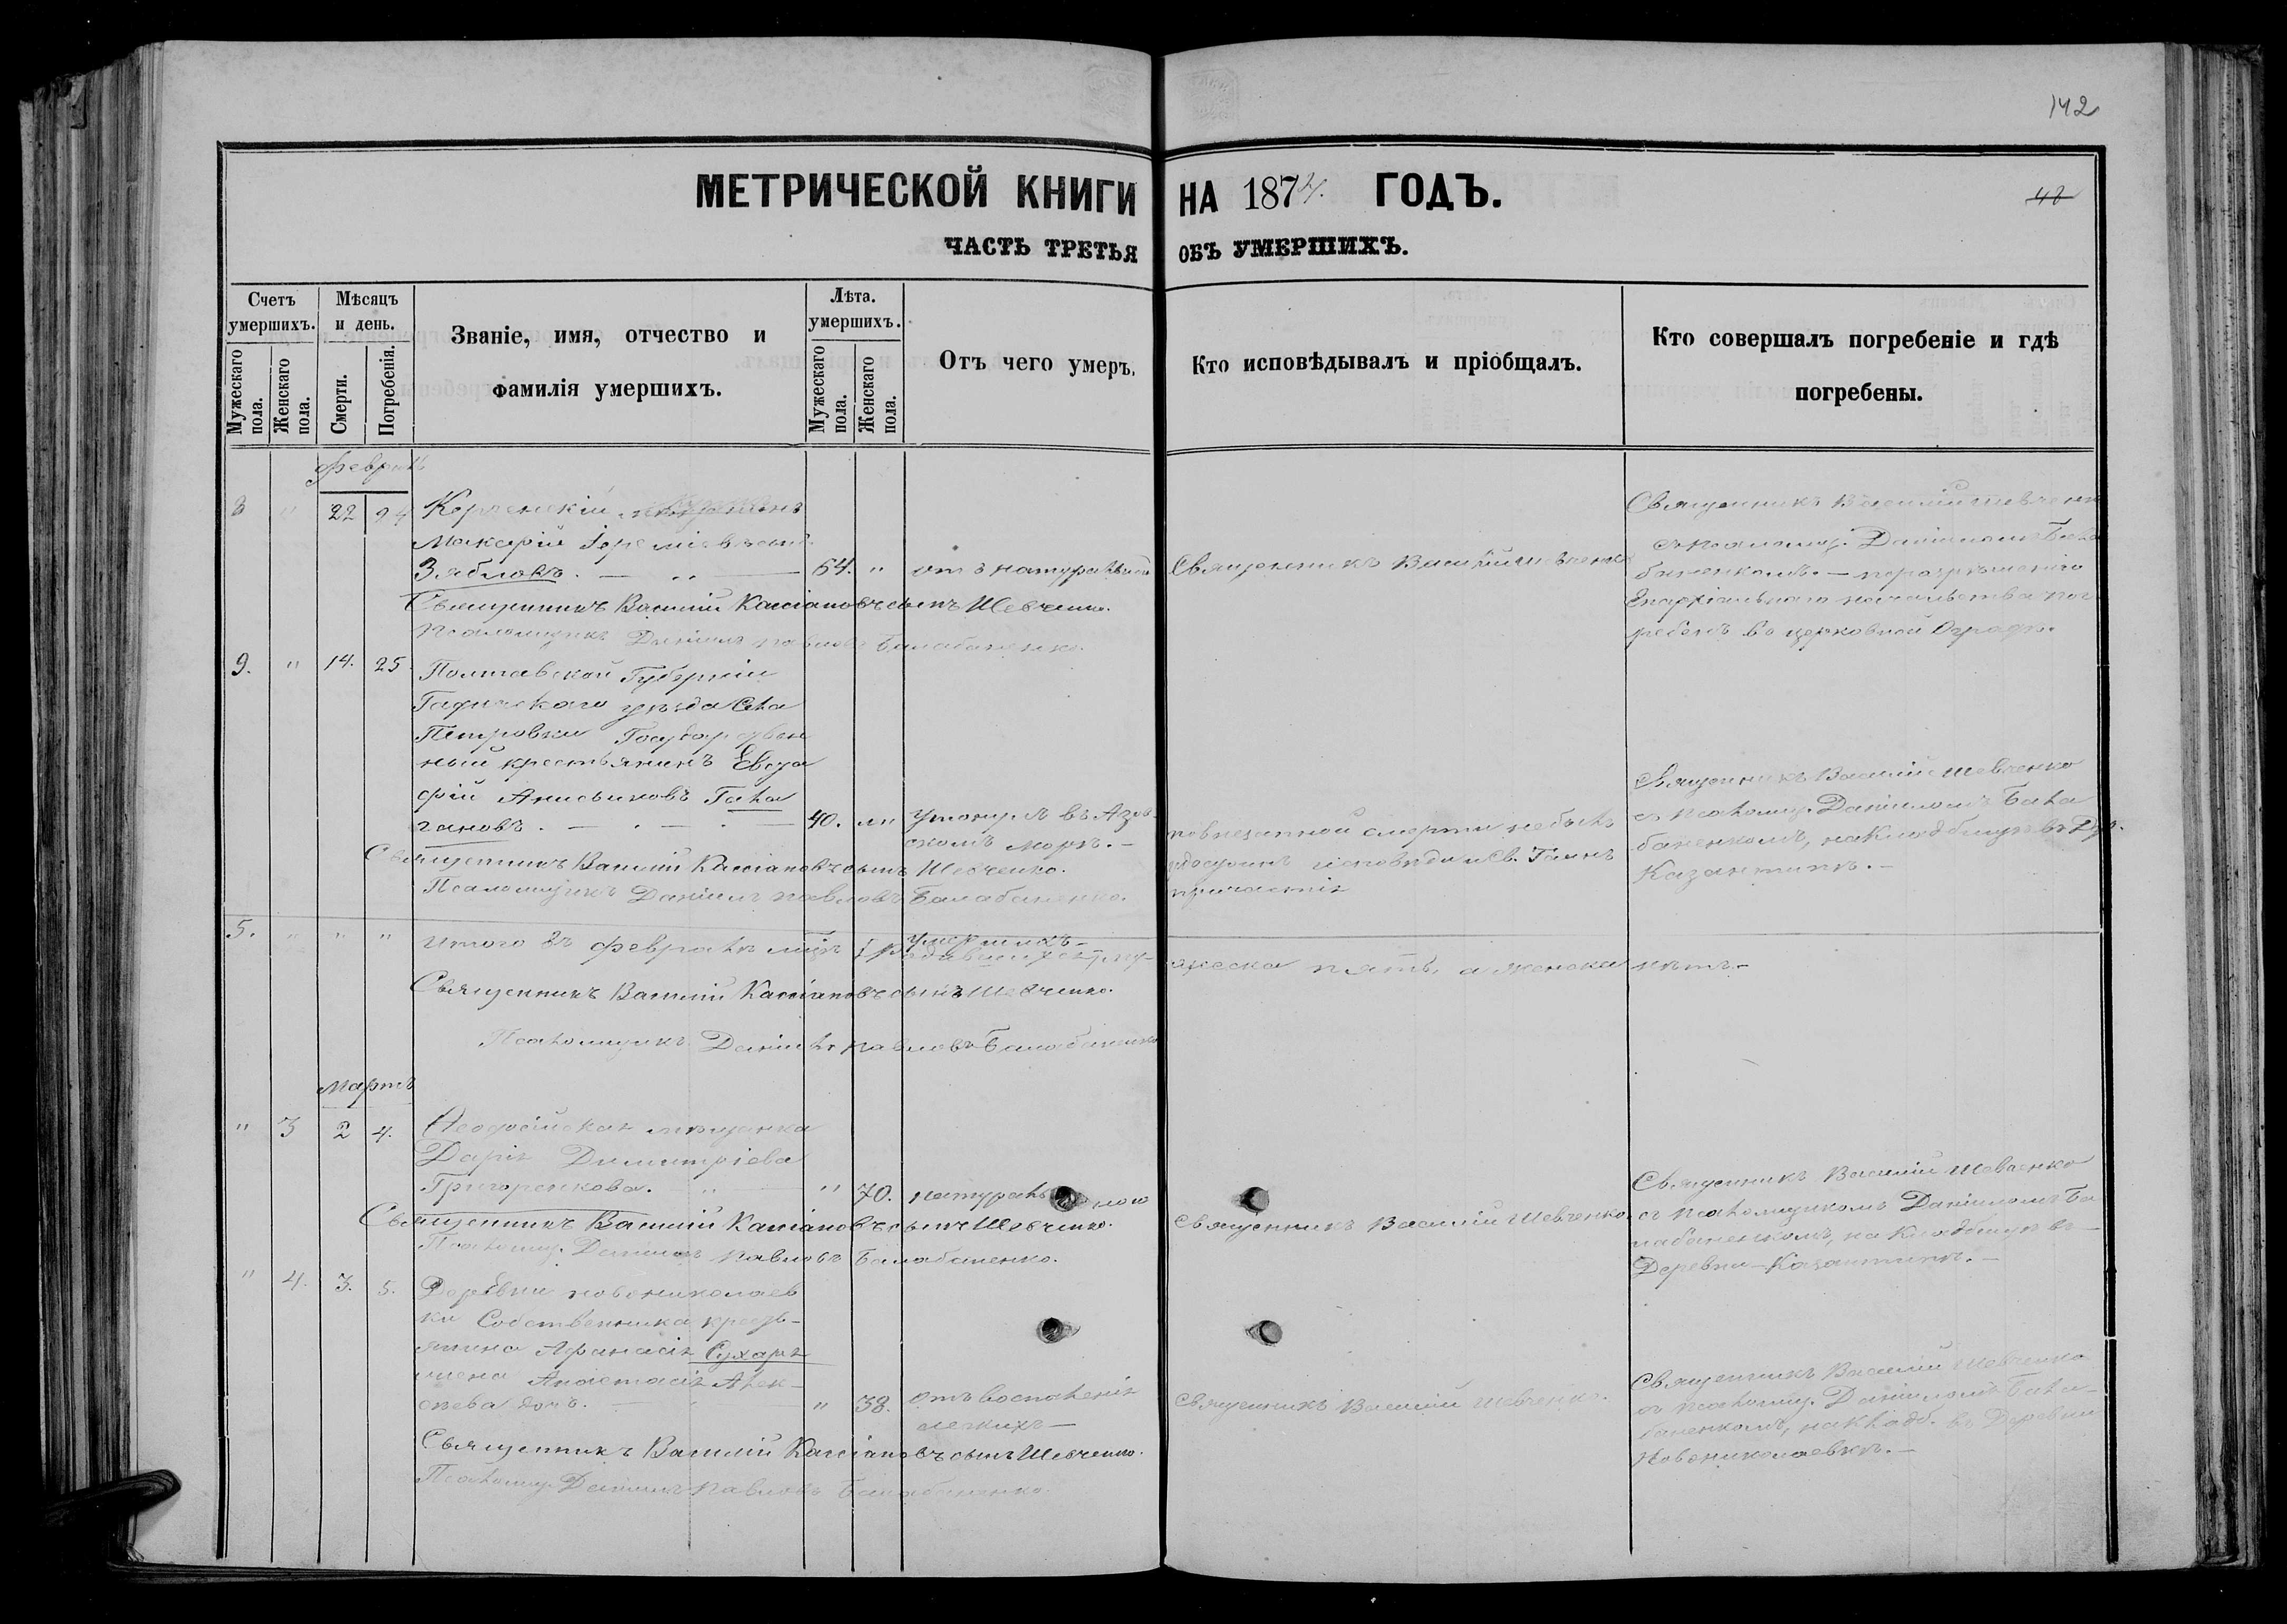 142
МЕТРИЧЕСКОЙ КНИГИ НА 1874. ГОДЪ.
48
ЧАСТЬ ТРЕТЬЯ ОБЪ УМЕРШИХЪ.
Счетъ умершихъ.
Мужескаго пола.
Женскаго пола.
Мѣсяцъ и день.
Смерти.
Погребенія.
Званіе, имя, отчество и
фамилія умершихъ.
Лѣта. умершихъ.
Мужескаго пола.
Женскаго пола.
Отъ чего умеръ.
Кто исповѣдывалъ и пріобщалъ.
Кто совершалъ погребеніе и гдѣ
погребены.
8 " 22 24
Керченскій
Макарій
Зябловъ. 64. " отъ натуральной
Священникъ Василій Шевченко
Священникъ Василій Шевченко
съ псаломщ. Даніиломъ Бала
баненкомъ.
Епархіальнаго начальства пог
ребенъ во церковной Оградѣ.
Священникъ Василій Кассіановъ сынъ Шевченко.
Псаломщикъ Даніилъ Павловъ Балабаненко.
9. " 14. 25
Полтавской Губерніи
Гадячскаго уѣзда Села
Петровки Государствен
ный крестьянинъ Евста
фій Гала
гановъ. 40.
Утонулъ въ Азов-
скомъ морѣ.
по внезапной смерти небылъ
исповѣди и Св. Таинъ
причастія
Священникъ Василій Шевченко
съ псаломщ. Даніиломъ Бала
баненкомъ, на кладбищѣ въ Дер.
Казантипѣ.
Священникъ Василій Кассіановъ сынъ Шевченко.
Псаломщикъ Даніилъ Павловъ Балабаненко.
5. " " "
Итого въ февралѣ м͠цѣ умершихъ му-
жеска пять, а женска нѣтъ.
Священникъ Василій Кассіановъ сынъ Шевченко.
Псаломщикъ Даніилъ Павловъ Балабаненко
Мартъ
" 3 2 4.
Ѳеодосійская мѣщанка
Дарія Димитріева
Григоренкова. " 70. натуральною
Священникъ Василій Шевченко
Священникъ Василій Шевченко
съ псаломщикомъ Даніиломъ Ба
лабаненкомъ, на Кладбищѣ въ
Деревни Казантипѣ.
Священникъ Василій Кассіановъ сынъ Шевченко.
Псаломщ. Даніилъ Павловъ Балабаненко.
" 4. 3. 5.
Деревни Новониколаев
ки Собственника крестья-
янина Афанасія Сухаря
жена Анастасія Алек-
сѣева дочь. " 38.
отъ воспаленія
легкихъ
Священникъ Василій Шевченко.
Священникъ Василій Шевченко
съ псаломщ. Даніиломъ Бала-
баненкомъ, на кладб. въ Деревни
Новониколаевкѣ.
Священникъ Василій Кассіановъ сынъ Шевченко.
Псаломщ. Даніилъ Павловъ Балабаненко.